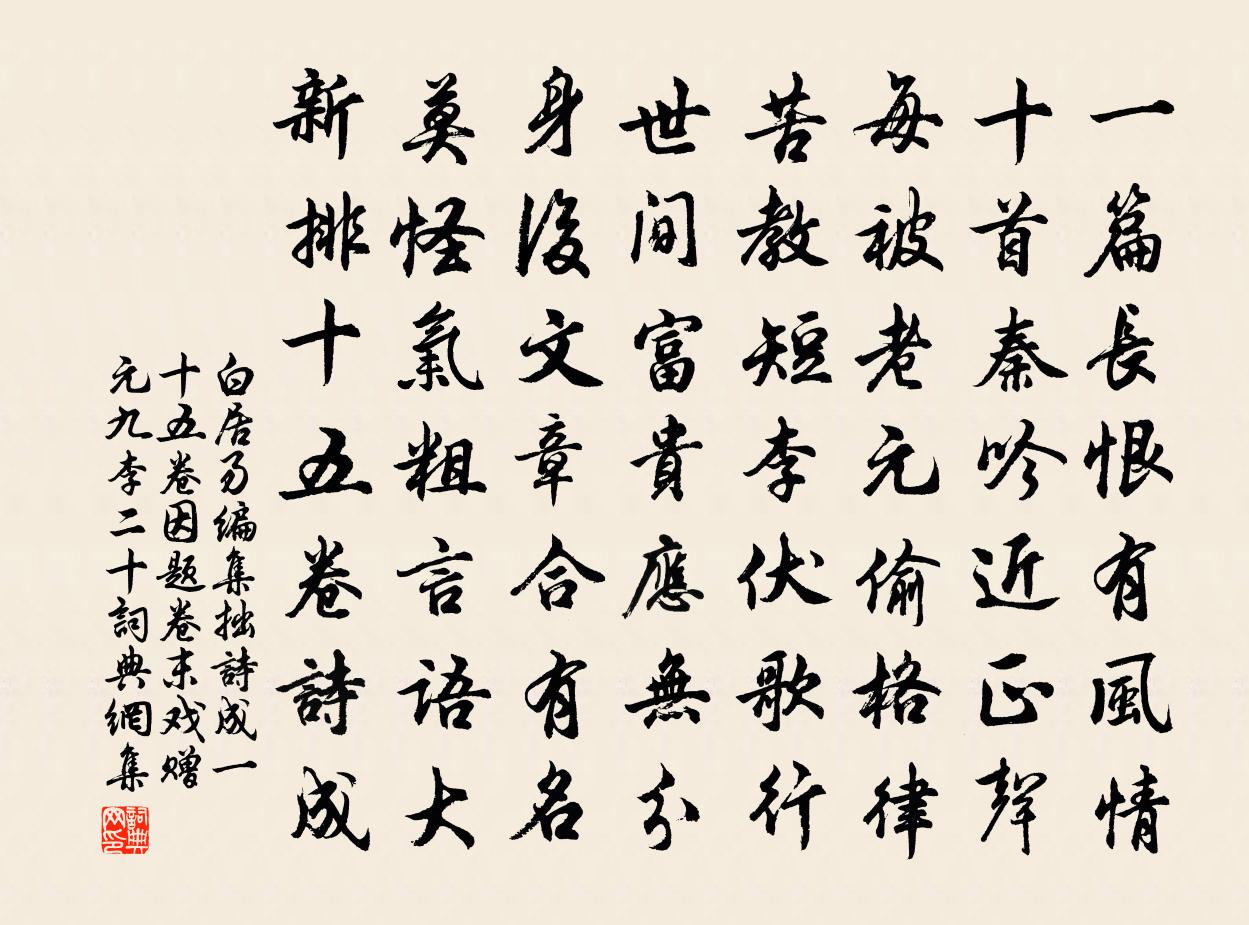 一篇長恨有風情
十首秦吟近正聲
每被老元偷格律
苦教短李伏歌行
世間富貴應無分
身後文章合有名
莫怪氣粗言語大
新排十五卷詩成
白居易编集拙詩成一
十五卷因題卷末戏赠
元九李二十詞典網集